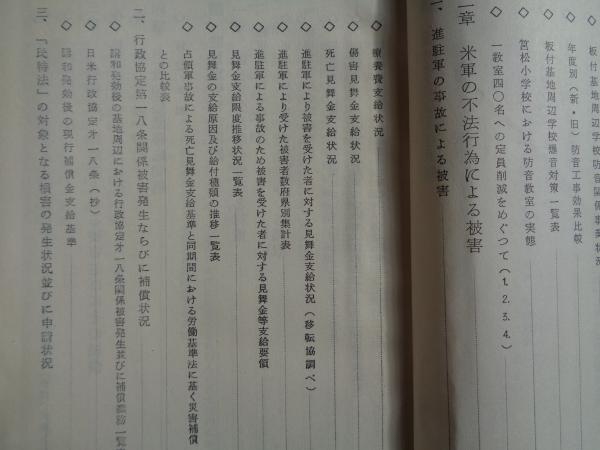 ◇ 板付基地周辺学校防音関係事業状況
◇ 年度別(新・旧)防音工事効果比較
◇ 板付基地周辺学校爆音対策一覧表
◇ 筥松小学校における防音教室の実態
◇ 一教室四〇名への定員削減をめぐつて(1.2.3.4.)
二章 米軍の不法行為による被害
一、進駐軍の事故による被害
◇ 療養費支給状況
◇ 傷害見舞金支給状況
◇ 死亡見舞金支給状況
◇ 進駐軍により被害を受けた者に対する見舞金支給状況(移転協調べ)
◇ 進駐軍により受けた被害者数府県別集計表
◇ 進駐軍による事故のため被害を受けた者に対する見舞金等支給要領
◇ 見舞金支給限度推移状況一覧表
◇ 見舞金の支給原因及び給付種類の推移一覧表
◇ 占領軍事故による死亡見舞金支給基準と同期間における労働基準法に基く災害補償
との比較表
二、行政協定第一八条関係被害発生ならびに補償状況
◇ 講和発効後の基地周辺における行政協定オ一八条関係被害発生並びに補償義務一覧
◇ 日米行政協定オ一八条(抄)
◇ 講和発効後の現行補償金支給基準
三、「民特法」の対象となる損害の発生状況並びに申請状況